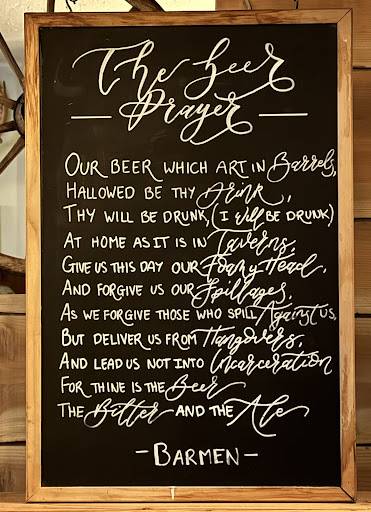 The beer
Prayer
OUR BEER WHICH ART IN Barrels,
HALLOWED BE THY drink,
THY WILL BE DRUNK, (I WILL BE DRUNK)
AT HOME AS IT IS IN Taverns,
GIVE US THIS DAY OUR Foamy Head,
AND FORGIVE US OUR Spillages,
AS WE FORGIVE THOSE WHO SPILL Against US,
BUT DELIVER US FROM Hangovers,
AND LEAD US NOT INTO Incarceration
FOR THINE IS THE Beer
THE Bitter AND THE Ale
- BARMEN -